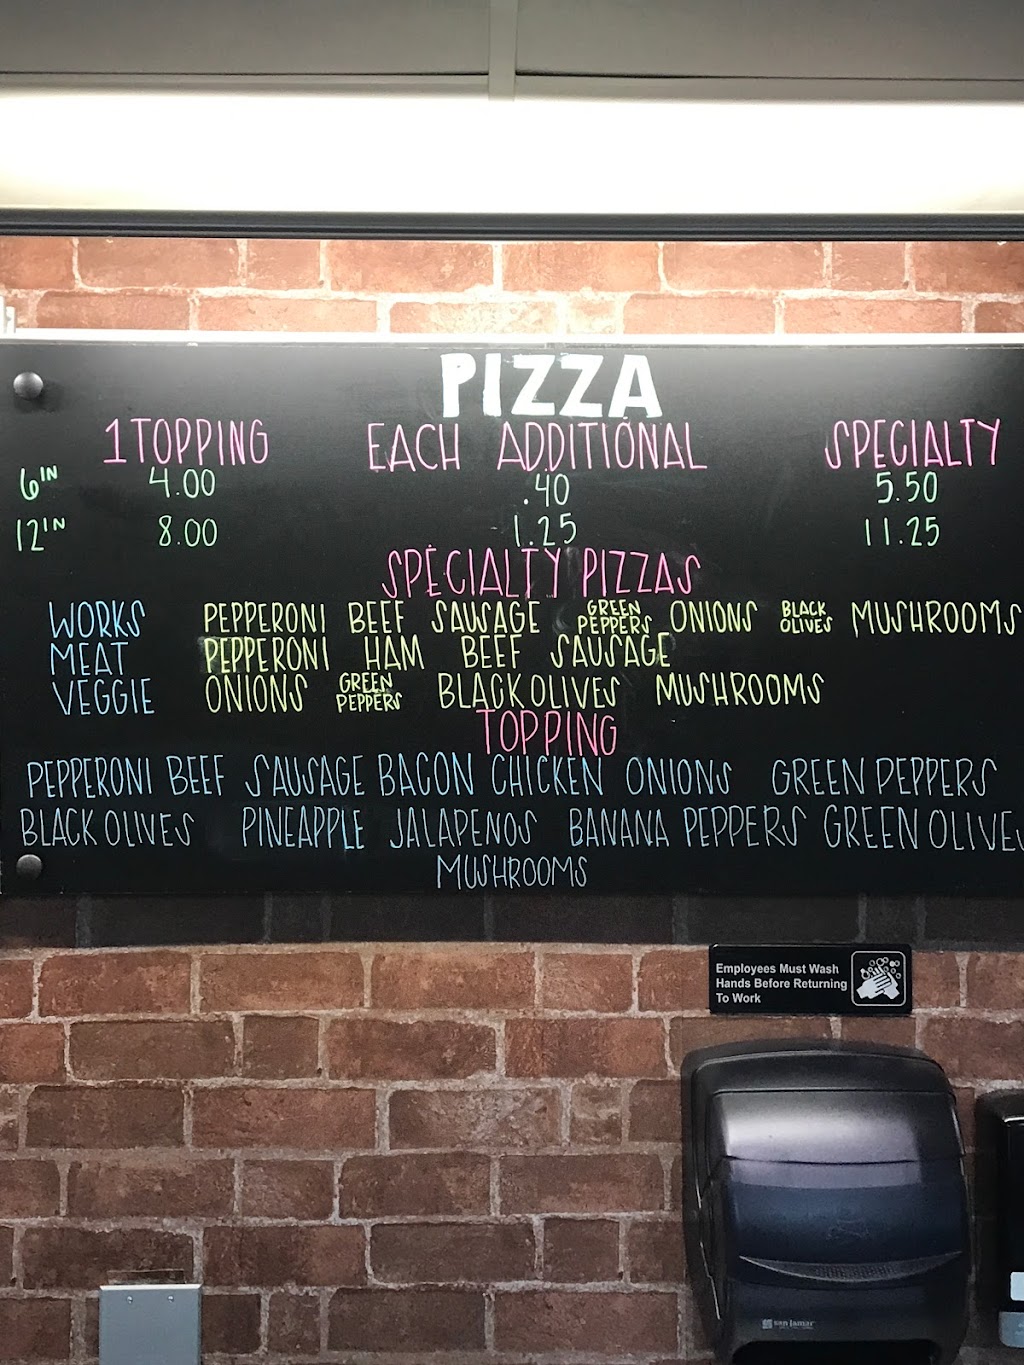 PIZZA
1 TOPPING EACH ADDITIONAL SPECIALTY
6IN 4.00 .40 5.50
12IN 8.00 1.25 11.25
SPECIALTY PIZZAS
WORKS PEPPERONI BEEF SAUSAGE GREEN PEPPERS ONIONS BLACK OLIVES MUSHROOMS
MEAT PEPPERONI HAM BEEF SAUSAGE
VEGGIE ONIONS GREEN PEPPERS BLACK OLIVES MUSHROOMS
TOPPING
PEPPERONI BEEF SAUSAGE BACON CHICKEN ONIONS GREEN PEPPERS
BLACK OLIVES PINEAPPLE JALAPENOS BANANA PEPPERS GREEN OLIVES
MUSHROOMS
Employees Must Wash
Hands Before Returning
To Work
san jamar